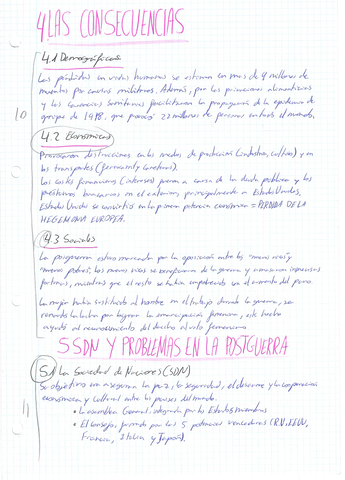 4 LAS CONSECUENCIAS
4.1 Demográficas
Las pérdidas en vidas humanas se estiman en mas de 9 millones de
muertos por causas militares. Además, por las privaciones alimenticias
y las carencias sanitarias facilitaron la propagación de la epidemia de
gripe de 1918, que provocó 22 millones de personas en todo el mundo.
10
4.2 Económicas
Provocaron destrucciones en los medios de producción (industrias, cultivos) y en
los transportes (ferrocarril y carreteras).
Los costes financieros (intereses) fueron a causa de la deuda pública y los
préstamos bancarios en el exterior, principalmente a Estados Unidos.
Estados Unidos se convirtió en la primera potencia económica = PÉRDIDA DE LA
HEGEMONÍA EUROPEA.
4.3 Sociales
La posguerra estuvo marcada por la oposición entre los "nuevos ricos" y
"nuevos pobres", los nuevos ricos se beneficiaron de la guerra y amasaron inmensas
fortunas, mientras que el resto se había empobrecido con el aumento del paro.
La mujer había sustituido al hombre en el trabajo durante la guerra, se
reanudó la lucha por lograr la emancipación femenina, este hecho
ayudó al reconocimiento del derecho al voto femenino
5 SDN Y PROBLEMAS EN LA POSTGUERRA
5.1 La Sociedad de Naciones (SDN)
Su objetivo era asegurar la paz, la seguridad, el desarme y la cooperación
económica y cultural entre los países del mundo.
11
• La asamblea General, integrada por los Estados miembros
• El consejo, formado por las 5 potencias vencedoras (R.U, EEUU,
Francia, Italia y Japón).